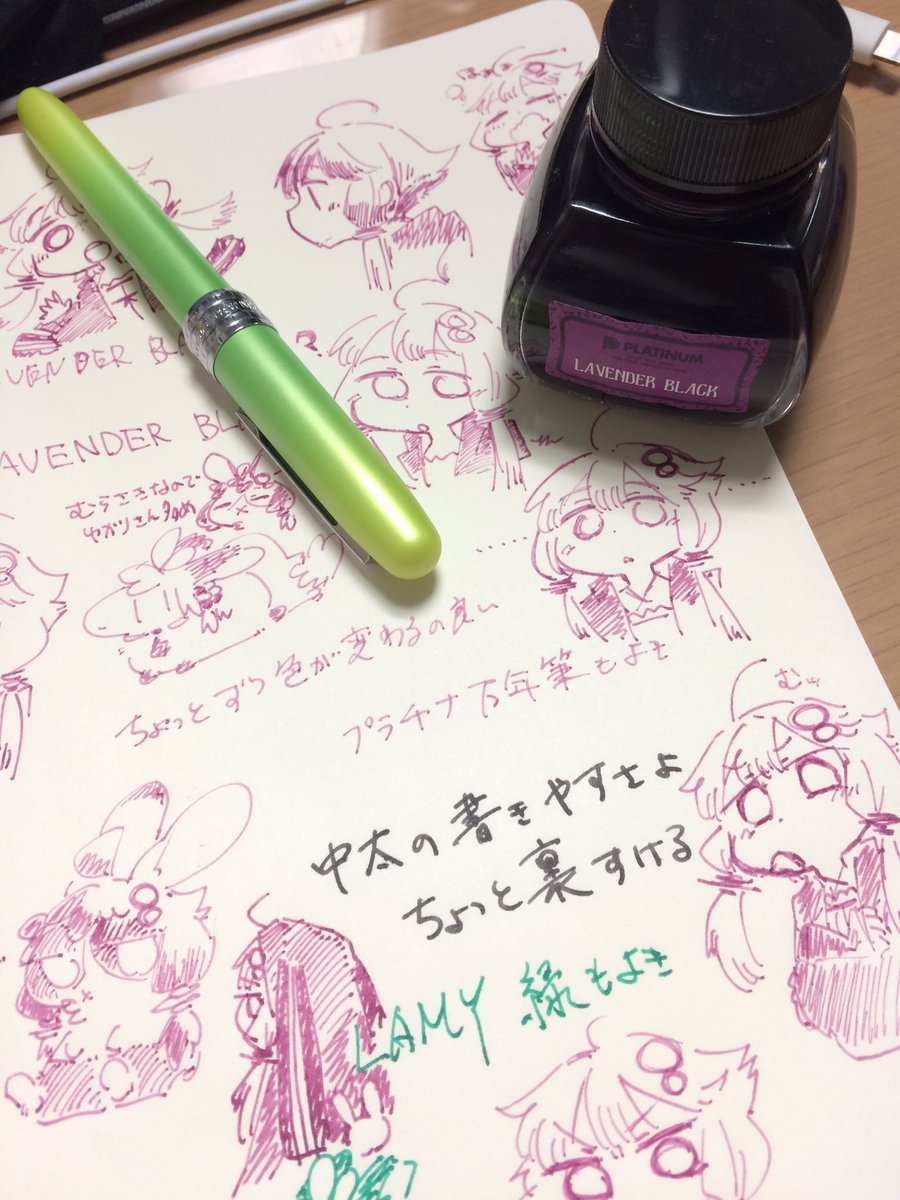 PLATINUM
LAVENDER BLACK
AVENDER BLA
むらさきなので
ゆかりさん多め
ちょっとずつ色が変わるの良い
プラチナ万年筆もよき
むッ
中太の書きやすさよ
ちょっと裏すける
LAMY 緑もよき